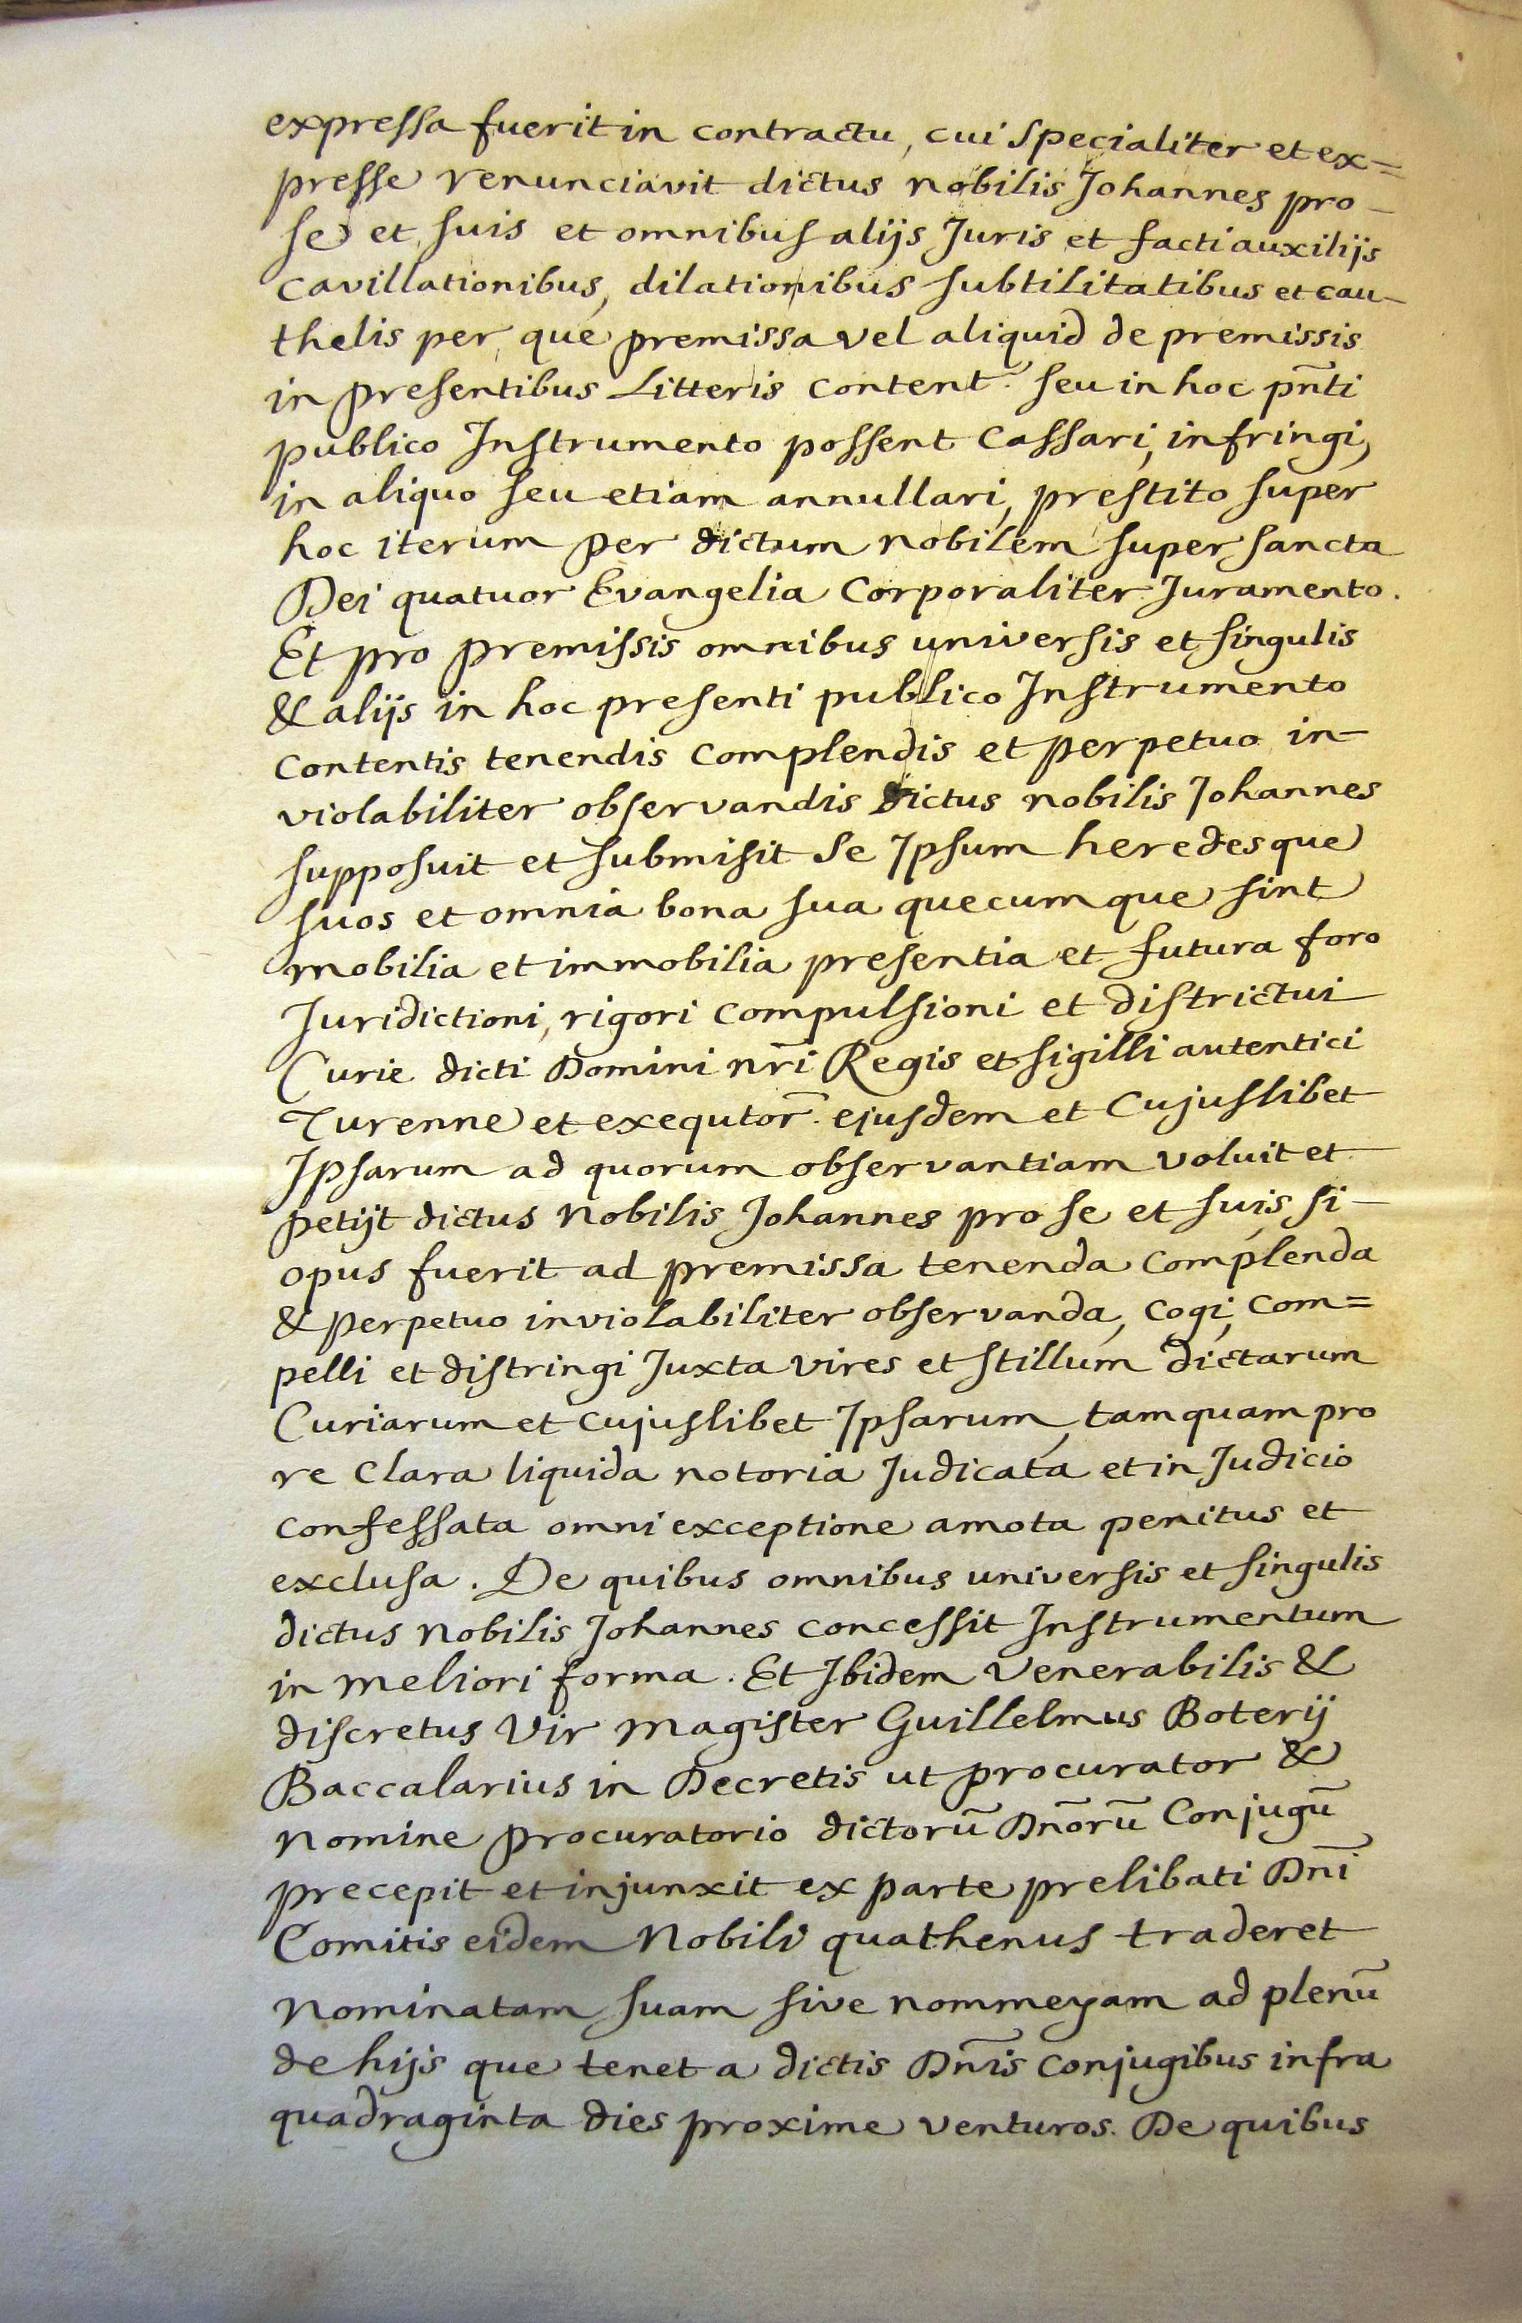 expressa fuerit in contractu, cui specialiter et ex=
presse renunciavit dictus nobilis Johannes pro-
se et suis et omnibus alijs Juris et facti auxilijs
cavillationibus, dilationibus subtilitatibus et cau-
thelis per que premissa vel aliquid de premissis
in presentibus Litteris content. seu in hoc pñti
publico Instrumento possent Cassari, infringi,
in aliquo seu etiam annullari, prestito super
hoc iterum per dictum nobilem super sancta
Dei quatuor Evangelia Corporaliter Juramento.
Et pro premissis omnibus universis et singulis
& alijs in hoc presenti publico Instrumento
contentis tenendis complendis et perpetuo in-
violabiliter observandis dictus nobilis Johannes
supposuit et submisit se Ipsum heredesque
suos et omnia bona sua quecumque sint
mobilia et immobilia presentia et futura foro
Juridictioni, rigori compulsioni et districtui
Curie dicti Domini nr̃i Regis et sigilli autentici
Turenne et exequtor̃. ejusdem et Cujuslibet
Ipsarum ad quorum observantiam voluit et
petijt dictus Nobilis Johannes pro se et suis, si-
opus fuerit ad premissa tenenda complenda
& perpetuo inviolabiliter observanda, cogi, com=
pelli et distringi Juxta vires et stillum dictarum
Curiarum et cujuslibet Ipsarum, tamquam pro
re Clara liquida notoria Judicata et in Judicio
confessata omni exceptione amota penitus et
exclusa. De quibus omnibus universis et singulis
dictus Nobilis Johannes concessit Instrumentum
in meliori forma. Et Ibidem Venerabilis &
discretus Vir Magister Guillelmus Boterij
Baccalarius in Decretis ut procurator &
Nomine procuratorio dictorū Dñorū Conjugū
precepit et injunxit ex parte prelibati Dñi
Comitis eidem Nobili quathenus traderet
Nominatam suam sive nommeyam ad plenū
de hijs que tenet a dictis Dñis conjugibus infra
quadraginta dies proxime venturos. De quibus